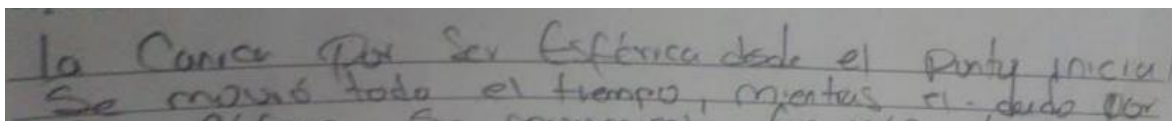 la Canica Por Ser Esférica desde el punto inicia
Se movió todo el tiempo, mientas el dado por